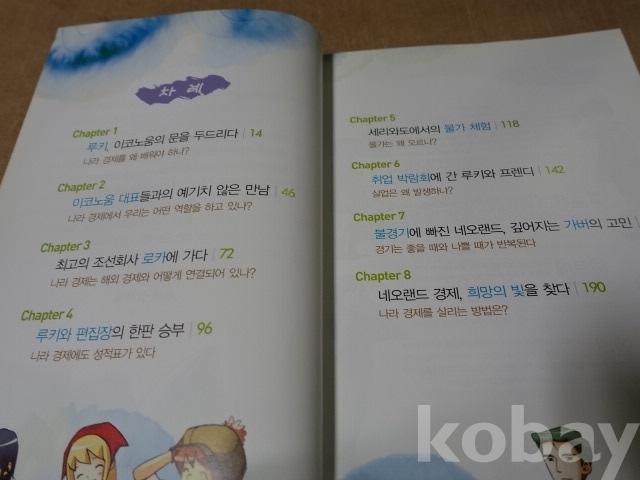 차례
Chapter 1
루키, 이코노움의 문을 두드리다 | 14
나라 경제를 왜 배워야 하나?
Chapter 2
이코노움 대표들과의 예기치 않은 만남 | 46
나라 경제에서 우리는 어떤 역할을 하고 있나?
Chapter 3
최고의 조선회사 로카에 가다 | 72
나라 경제는 해외 경제와 어떻게 연결되어 있나?
Chapter 4
루키와 편집장의 한판 승부 | 96
나라 경제에도 성적표가 있다
Chapter 5
세리와도에서의 물가 체험 | 118
물가는 왜 오르나?
Chapter 6
취업 박람회에 간 루키와 프렌디 | 142
실업은 왜 발생하나?
Chapter 7
불경기에 빠진 네오랜드, 깊어지는 가버의 고민
경기는 좋을 때와 나쁠 때가 반복된다
Chapter 8
네오랜드 경제, 희망의 빛을 찾다 | 190
나라 경제를 살리는 방법은?
kobay